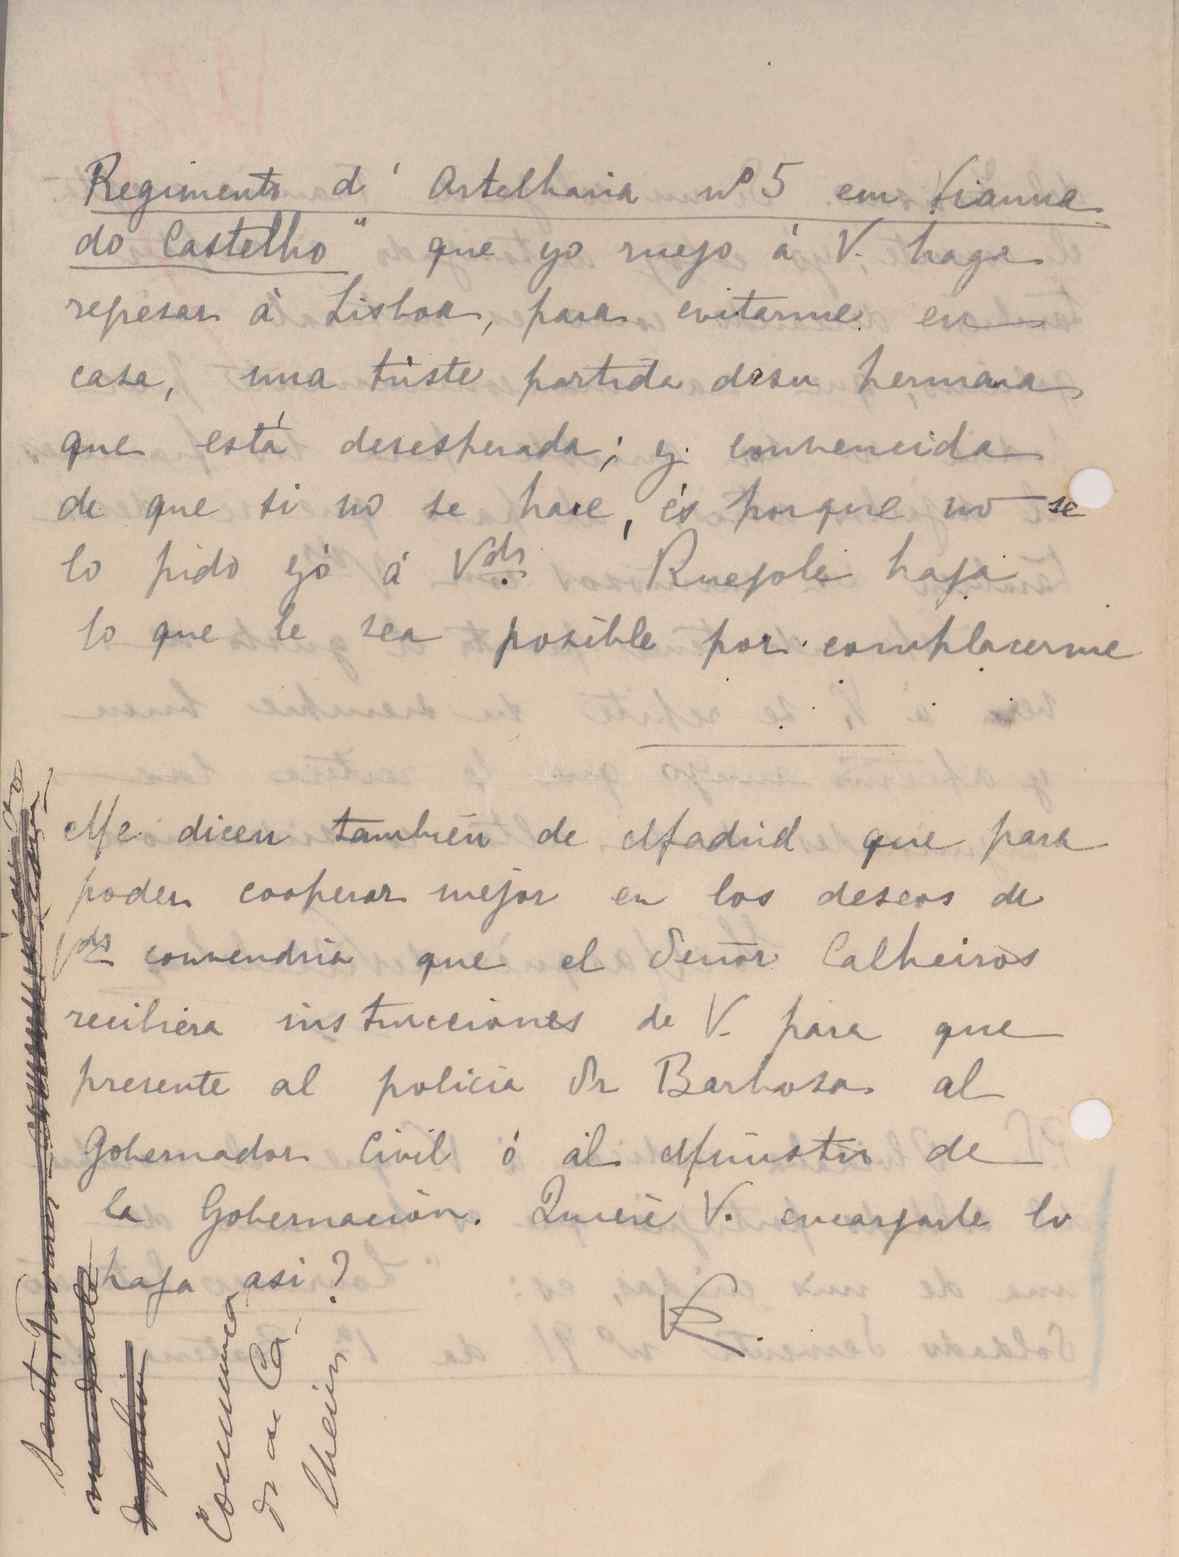 Regimento d' Artelharia nº 5 em Vianna
do Castelho" que yo ruejo á V. haga
repesar á Lisboa, para evitarme en
casa, una triste partida de su hermana
que está desesperada; y convencida
de que si no se hace, és porque no se
lo pido yó á Vds. Ruejole haja
lo que le sea posible por complacerme
Me dicen también de Madrid que para
poder cooperar mejor en los deseos de
Vds convendria que el Señor Calheiros
recibiera instrucciones de V. para que
presente al policia Sr Barbosa al
Gobernador Civil ó al Ministro de
la Gobernación. Quiere V. encargarle lo
haja asi?
Communica
do a Ca-
lheiros